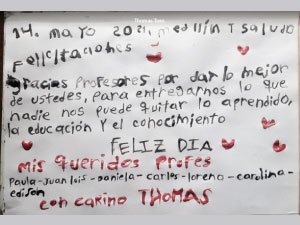 14. mayo 2021 medellín T saludo
Felicitaciones
gracias profesores por dar lo mejor
de ustedes, para entregarnos lo que
nadie nos puede quitar lo aprendido,
la educación y el conocimiento
FELIZ DIA
mis queridos profes
Paula-Juan luis-daniela-carlos-lorena-carolina-
edison
con cariño THOMAS